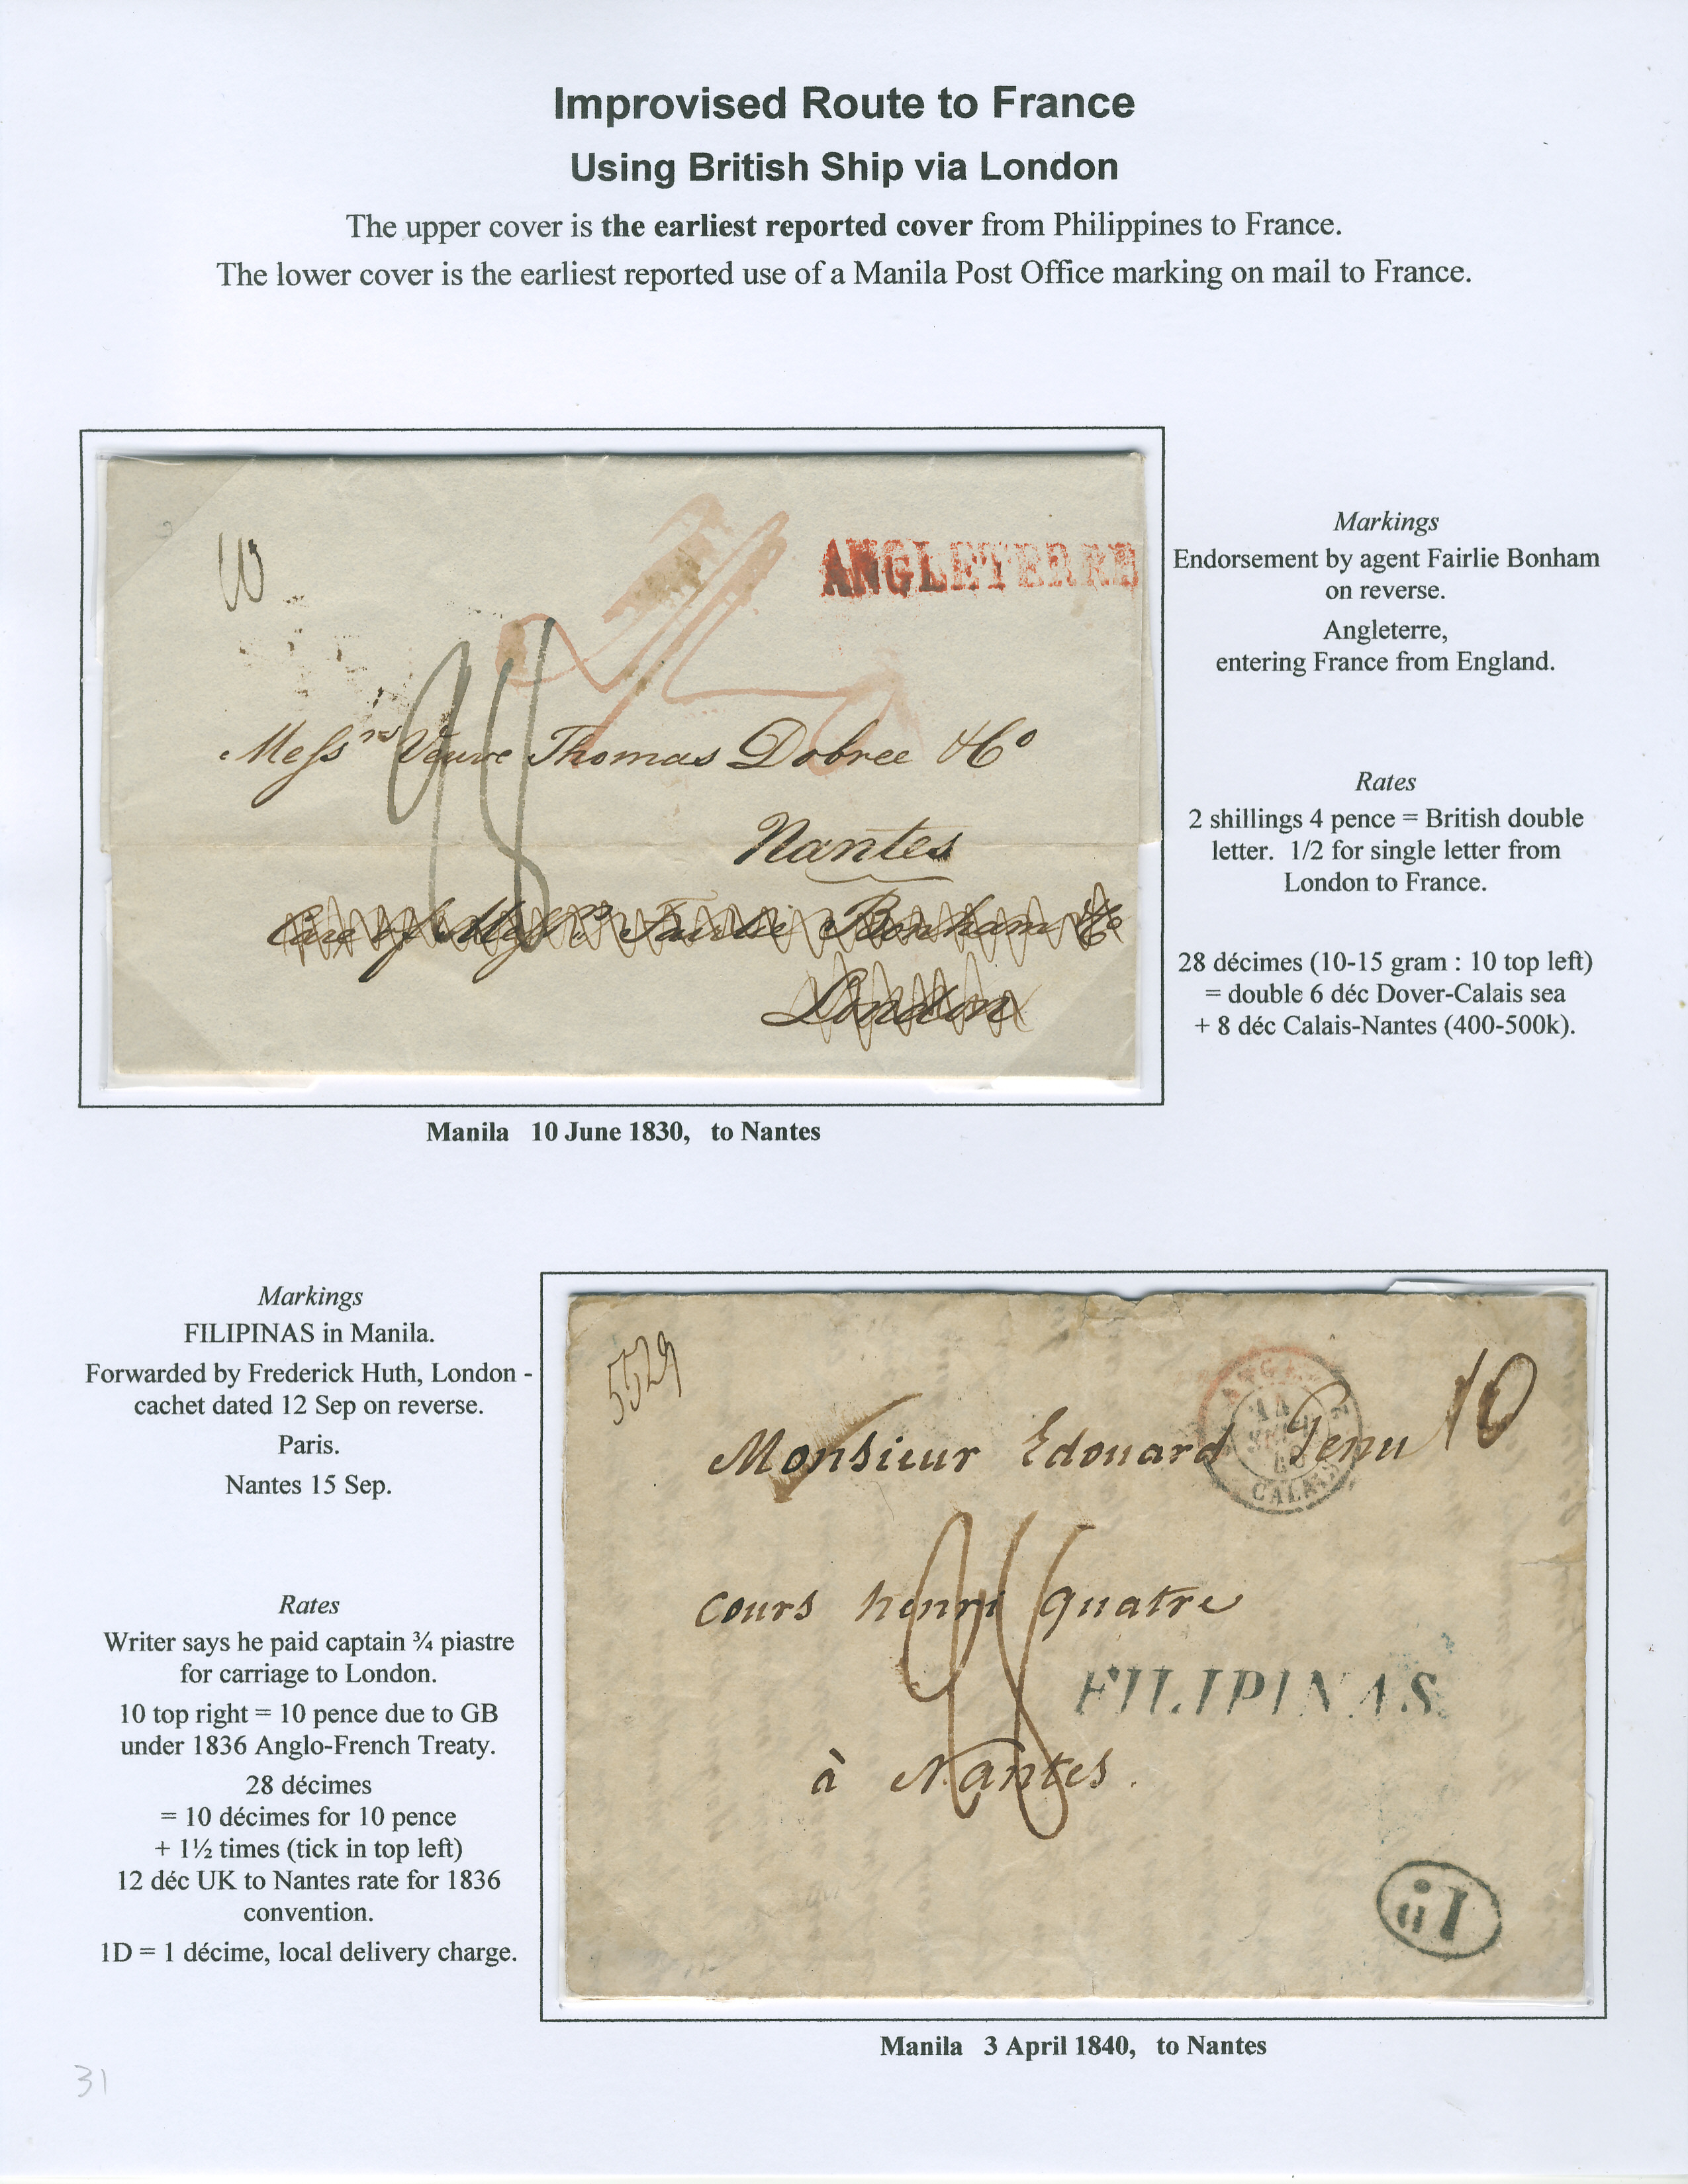 Improvised Route to France
Using British Ship via London
The upper cover is the earliest reported cover from Philippines to France.
The lower cover is the earliest reported use of a Manila Post Office marking on mail to France.
10
ANGLETERRE
28
Messrs Veuve Thomas Dobree & Co
Nantes
Care of Messrs Fairlie Bonham & Co
London
Markings
Endorsement by agent Fairlie Bonham
on reverse.
Angleterre,
entering France from England.
Rates
2 shillings 4 pence = British double
letter. 1/2 for single letter from
London to France.
28 décimes (10-15 gram : 10 top left)
= double 6 déc Dover-Calais sea
+ 8 déc Calais-Nantes (400-500k).
Manila 10 June 1830, to Nantes
Markings
FILIPINAS in Manila.
Forwarded by Frederick Huth, London -
cachet dated 12 Sep on reverse.
Paris.
Nantes 15 Sep.
Rates
Writer says he paid captain ¾ piastre
for carriage to London.
10 top right = 10 pence due to GB
under 1836 Anglo-French Treaty.
28 décimes
= 10 décimes for 10 pence
+ 1½ times (tick in top left)
12 déc UK to Nantes rate for 1836
convention.
1D = 1 décime, local delivery charge.
5529
10
14
CALAIS
Monsieur Edouard
cours henri quatre
28
FILIPINAS
à Nantes.
1D
Manila 3 April 1840, to Nantes
31